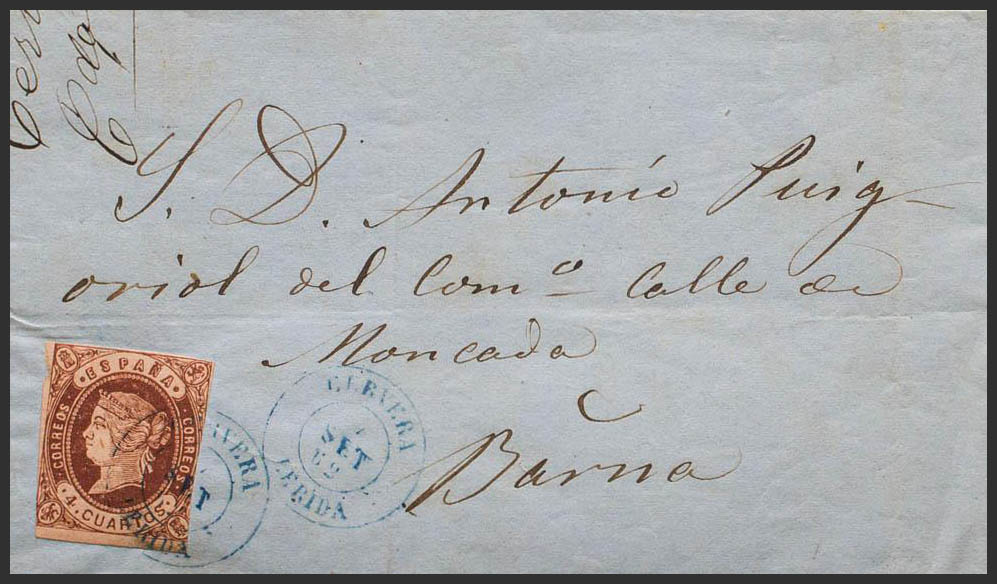 S. D. Antonio Puig-
oriol del Comº Calle de
Moncada
Barna
ESPAÑA
CORREOS
CORREOS
4. CUARTOS
CERVERA
SET
62
LERIDA
RVERA
SET
RIDA